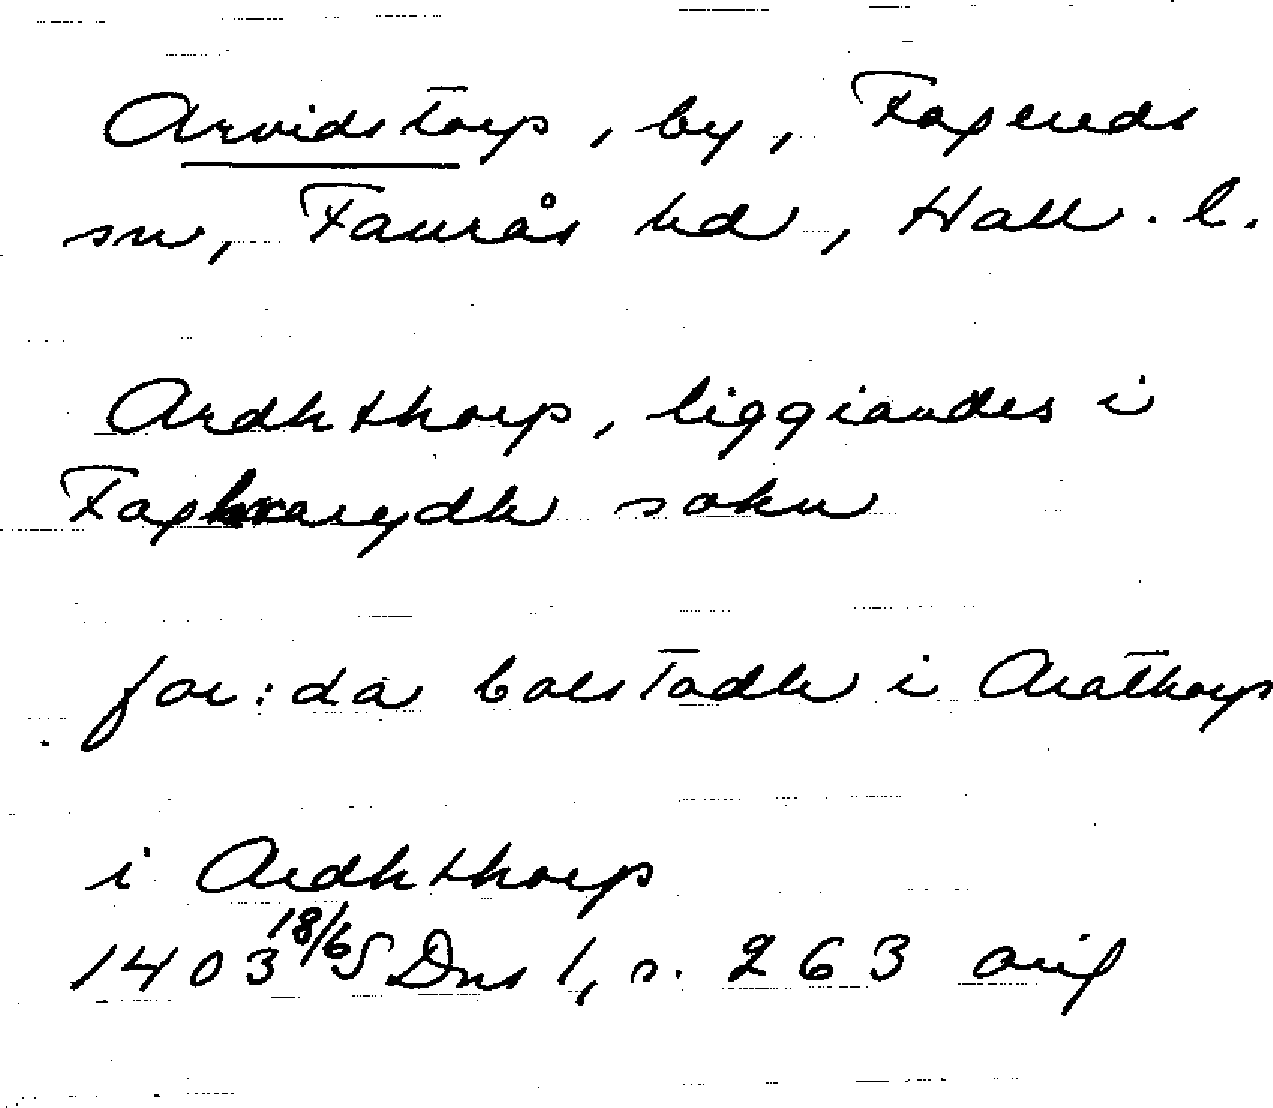 Arvidstorp, by, Fagereds
sn, Faurås hd, Hall. l.
Ardhthorp, liggiandes i
Faghrarydh sokn
for:da bolstadh i Arathorp
i Ardhthorp
1403 18/6 SDns 1, s. 263 orig